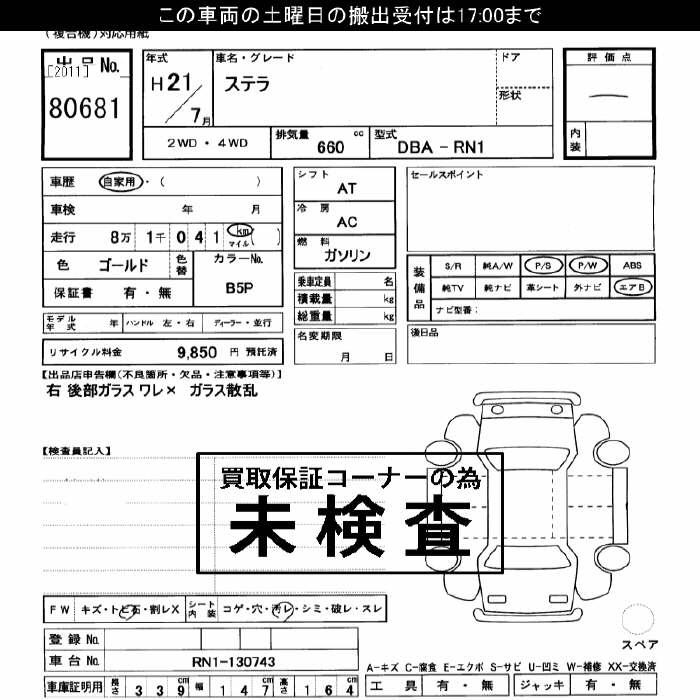 この車両の土曜日の搬出受付は17:00まで
(複合機)対応用紙
出品 No.
[2011]
80681
年式
H21/7月
車名・グレード
ステラ
ドア
形状
評価点
内装
2WD・4WD
排気量 660 cc
型式 DBA - RN1
車歴 自家用・( )
車検 年 月
走行 8万 1千 0 4 1 km マイル ( )
色 ゴールド 色替
カラーNo.
B5P
保証書 有・無
モデル年式 年 ハンドル 左・右 ディーラー・並行
リサイクル料金 9,850 円 預託済
シフト
AT
冷房
AC
燃料
ガソリン
乗車定員 名
積載量 kg
総重量 kg
名変期限
月 日
セールスポイント
装備品
S/R 純A/W P/S P/W ABS
純TV 純ナビ 革シート 外ナビ エアB
ナビ型番:
後日品
【出品店申告欄(不良箇所・欠品・注意事項等)】
右 後部ガラス ワレ× ガラス散乱
【検査員記入】
買取保証コーナーの為
未検査
FW キズ・トビ石・割レX シート内装 コゲ・穴・汚レ・シミ・破レ・スレ
登録 No.
車台 No. RN1-130743
車庫証明用 長さ 3 3 9 cm 幅 1 4 7 cm 高さ 1 6 4 cm
スペア
A-キズ C-腐食 E-エクボ S-サビ U-凹ミ W-補修 XX-交換済
工具 有・無 ジャッキ 有・無